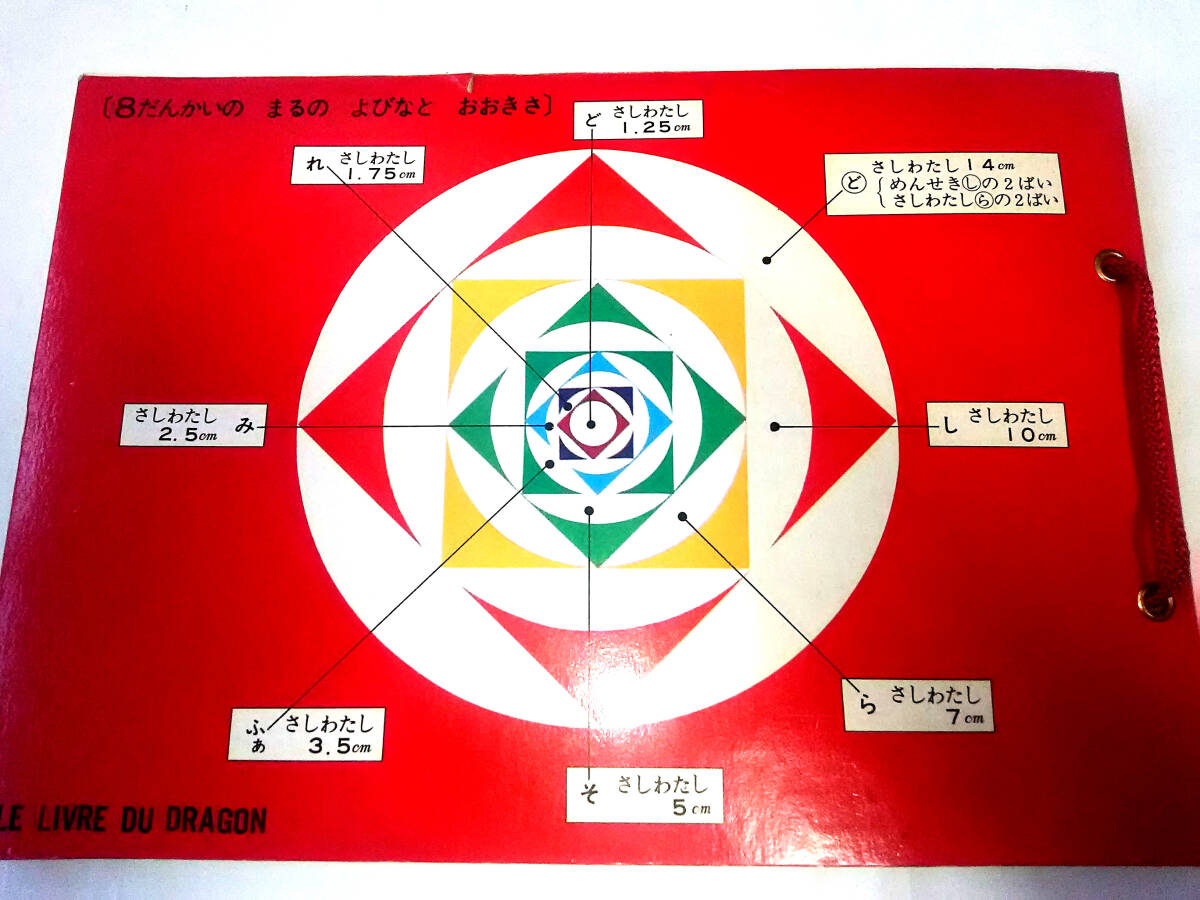 〔8だんかいの まるの よびなと おおきさ〕
ど さしわたし
1.25cm
れ さしわたし
1.75cm
ど さしわたし14cm
めんせきしの2ばい
さしわたしらの2ばい
さしわたし み
2.5cm
し さしわたし
10cm
ふぁ さしわたし
3.5cm
ら さしわたし
7cm
そ さしわたし
5cm
LE LIVRE DU DRAGON